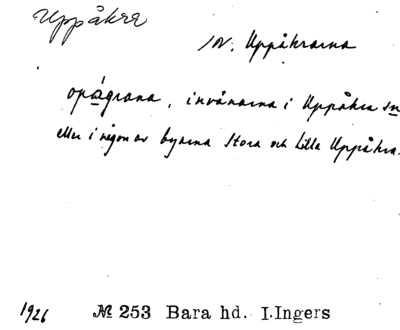 Uppåkra
sv. Uppåkrarna
opágrana, invånarna i Uppåkra sn
eller i någon av byarna Stora och Lilla Uppåkra.
1926 № 253 Bara hd. I.Ingers